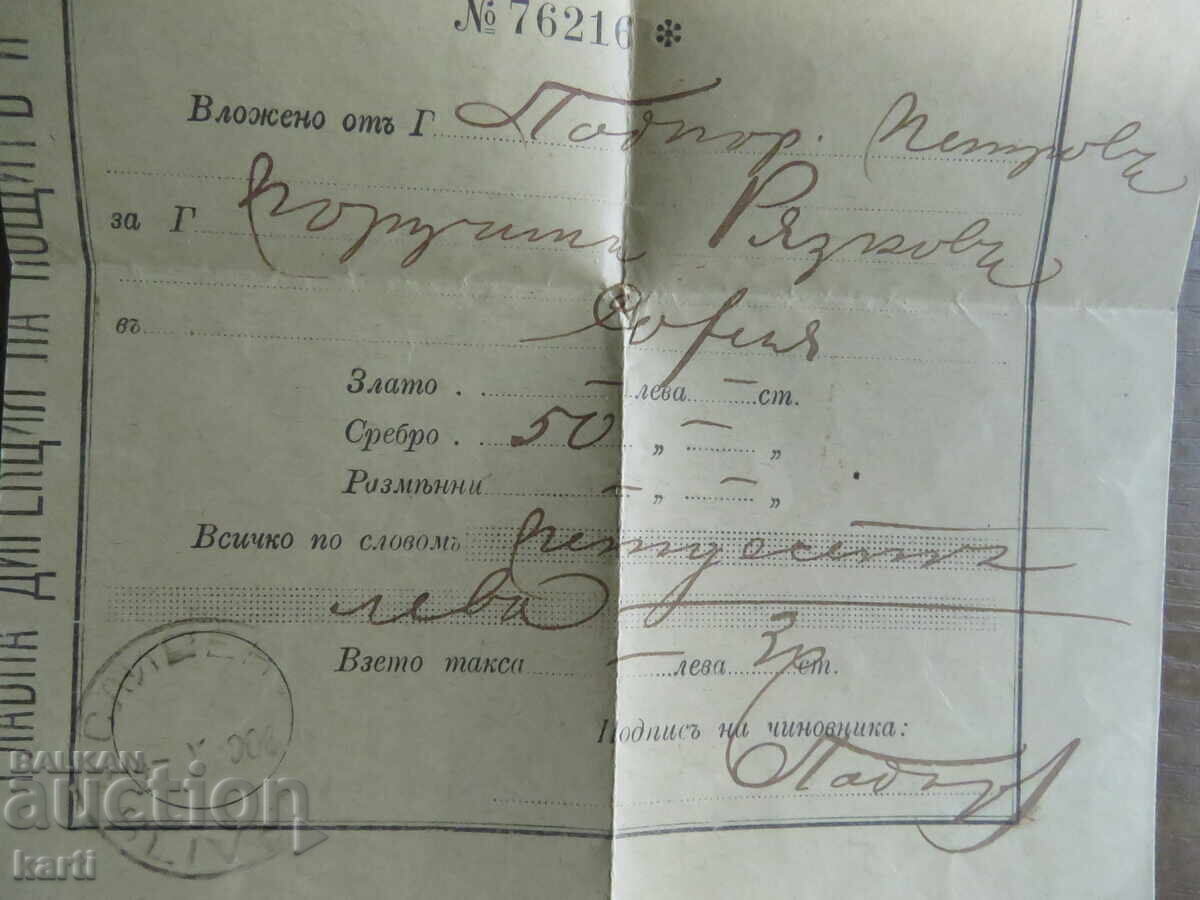 № 76216 *
Вложено отъ Г Подпор. Петровъ
за Г Поручикъ Рязковъ
въ София
Злато . — лева — ст.
Сребро . 50 „ — „
Размѣнни — „ — „
Всичко по словомъ петдесетъ
лева
Взето такса — лева ст.
Подписъ на чиновника:
СЛИВЕНЪ
SLIVEN
ДИРЕКЦИЯ НА ПОЩИТѢ И
BALKAN
auction
karti